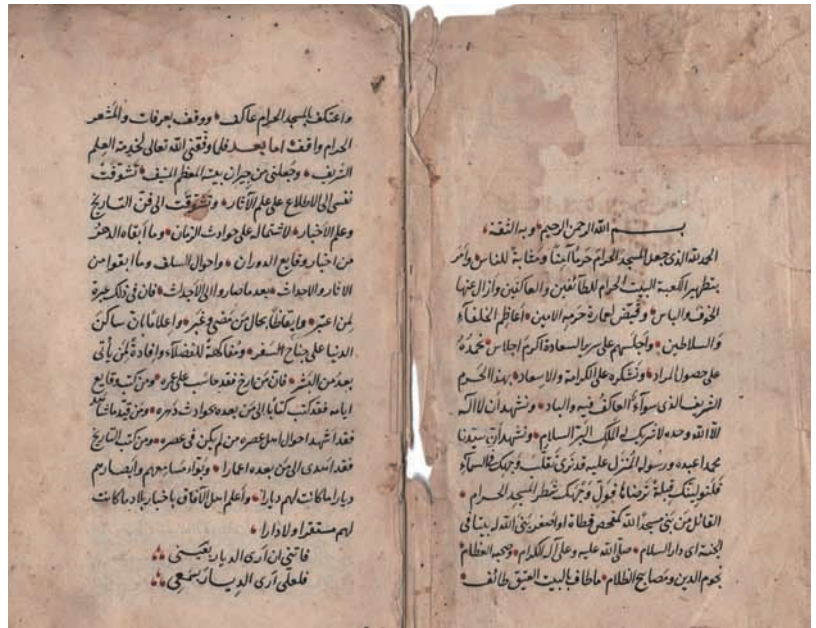 بسم الله الرحمن الرحيم وبه الثقة
الحمد لله الذى جعل المسجد الحرام حرما آمنا ومثابة للناس وأمر
بتطهير الكعبة البيت الحرام للطآئفين والعاكفين وأزال عنها
الخوف والباس وقيض لعمارة حرمه الامين أعاظم الخلفآء
والسلاطين وأجلسهم على سرير السعادة اكرم اجلاس نحمده
على حصول المراد ونشكره على الكرامة والاسعاد بهذا الحرم
الشريف الذى سوآء العاكف فيه والباد ونشهد أن لا اله
الا الله وحده لا شريك له الملك البر السلام ونشهد أن سيدنا
محمدا عبده ورسوله المنزل عليه قد نرى تقلب وجهك فى السمآء
فلنولينك قبلة ترضاها فول وجهك شطر المسجد الحرام
القائل من بنى مسجدا لله كمفحص قطاة او اصغر بنى الله له بيتا فى
الجنة اى دار السلام صلى الله عليه وعلى آله الكرام وصحبه العظام
نجوم الدين ومصابيح الظلام ما طاف بالبيت العتيق طائف
واعتكف بالمسجد الحرام عاكف ووقف بعرفات والمشعر
الحرام واقف اما بعد فلما وفقنى الله تعالى لخدمة العلم
الشريف وجعلنى من جيران بيته المعظم المنيف تشوقت
نفسى الى الاطلاع على علم الآثار وتشوقت الى فن التاريخ
وعلم الاخبار لاشتماله على حوادث الزمان وما أبقاه الدهر
من اخبار وقايع الدوران واحوال السلف وما ابقوا من
الاثار والاحداث بعد ما صاروا الى الأجداث فان فى ذلك عبرة
لمن اعتبر وايقاظا بحال من مضى وغبر واعلاما بان ساكن
الدنيا على جناح السفر ومفاكهة للفضلآء وافادة لمن يأتى
بعد من البشر فان من ارخ فقد حاسب على عمره ومن كتب وقايع
ايامه فقد كتب كتابا الى من بعده بحوادث دهره ومن قيد ما شاهد
فقد أشهد احوال اهل عصره من لم يكن فى عصره ومن كتب التاريخ
فقد اسدى الى من بعده اعمارا وبوأد مسامعهم وابصارهم
ديارا ما كانت لهم ديارا وأعلم اهل الآفاق باخبار بلاد ما كانت
لهم مستقرا ولا دارا
فاتنى ان أرى الديار بعينى
فلعلى أرى الديار بسمعى